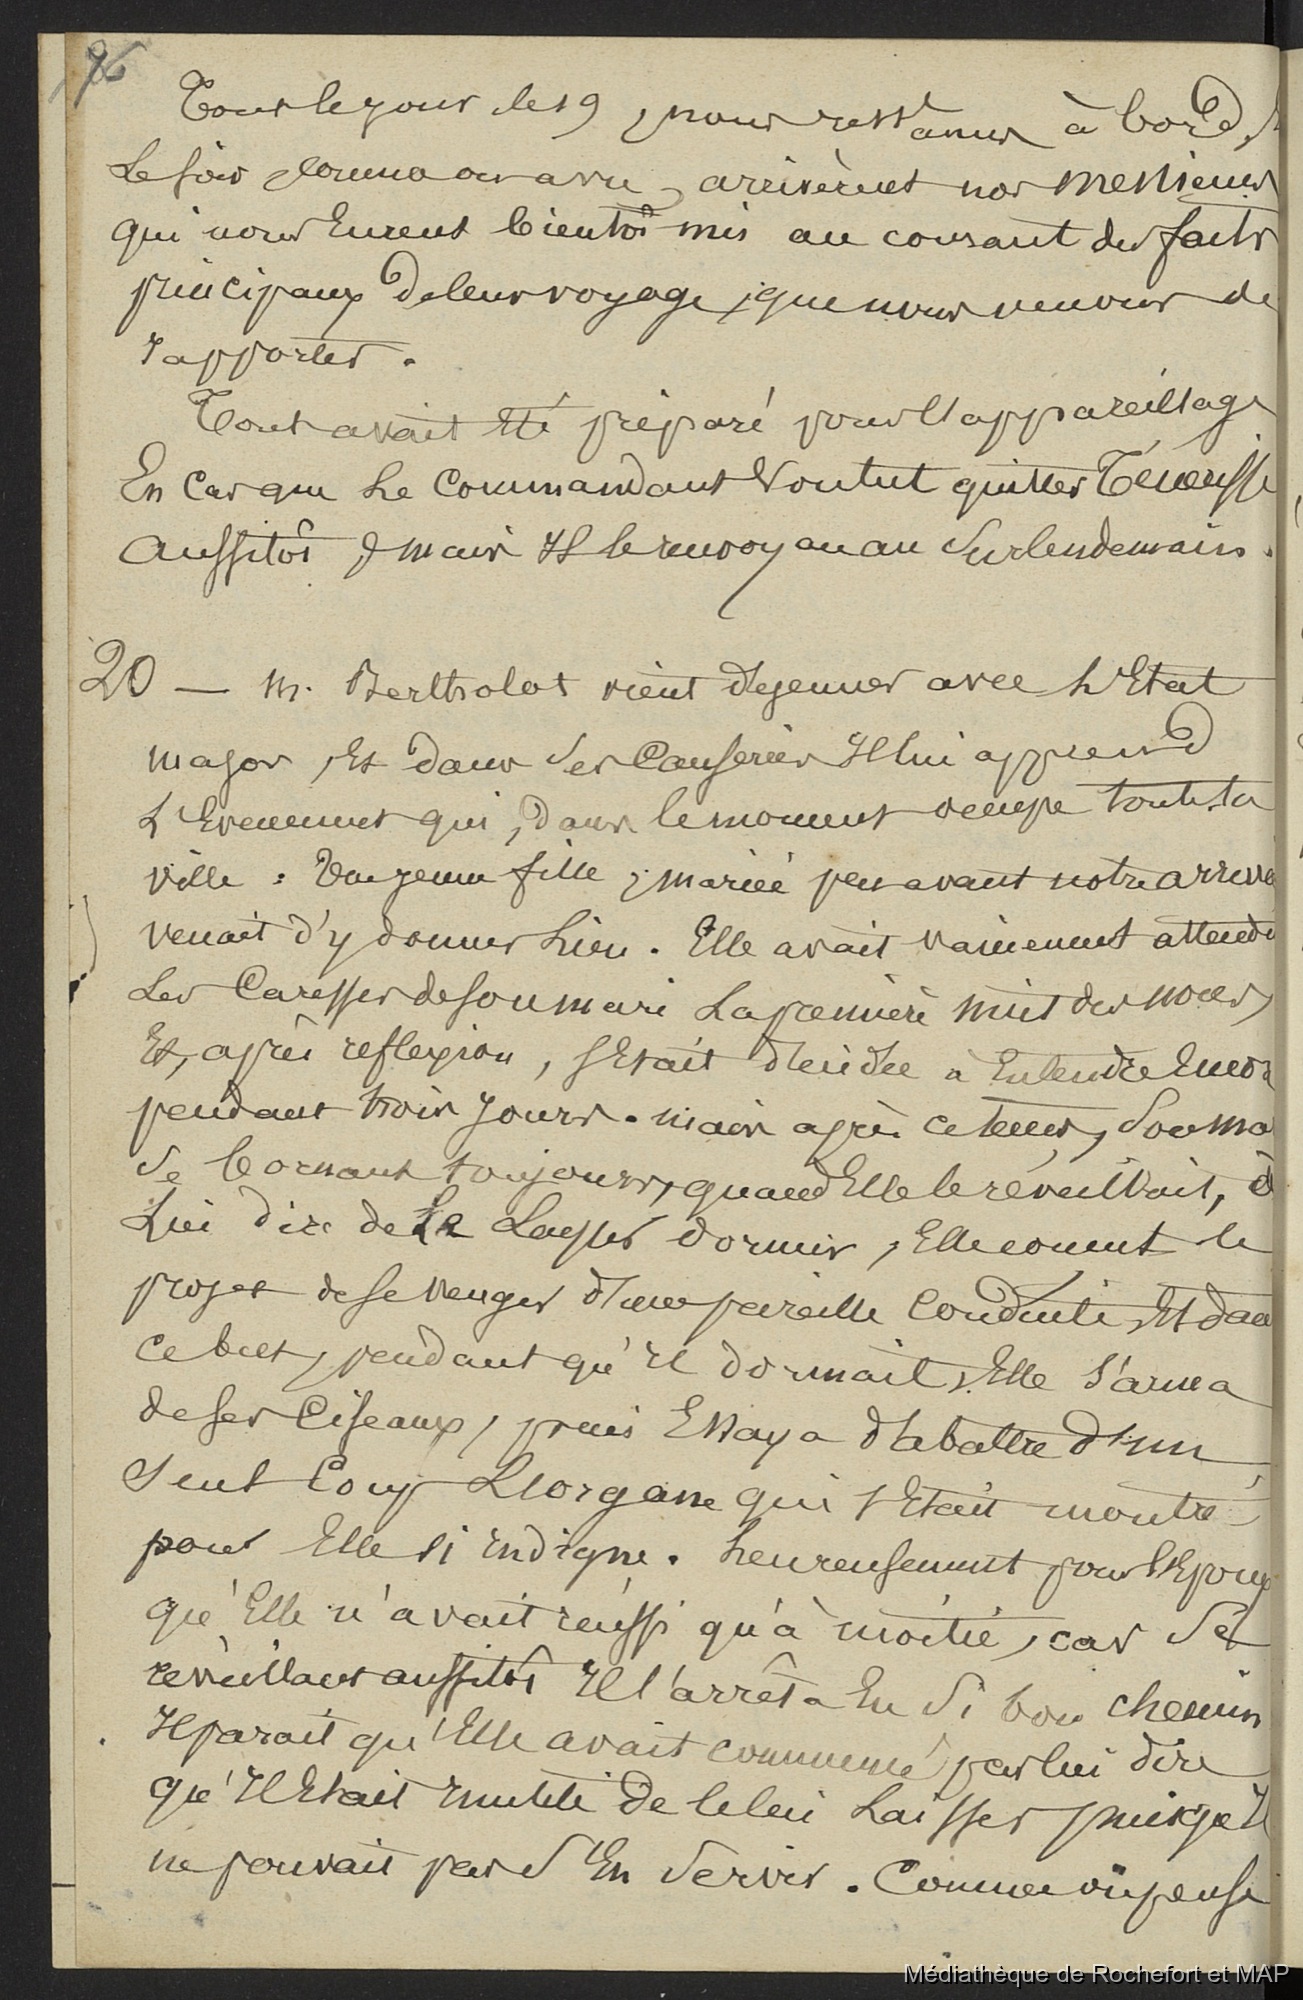 96
Tout le jour le 19, nous restames à bord,
Le soir comme on a vu, arrivèrent nos Messieurs
qui nous Eurent bientôt mis au courant des faits
principaux De leur voyage, que nous venons de
rapporter.
Tout avait Eté préparé pour l'appareillage
En Cas que Le Commandant Voulut quitter Ténériffe
Aussitôt, mais Il le renvoya au Surlendemain.
20 — M. Berthelot vient dejeuner avec L'Etat
major, Et Dans Ses Causeries Il lui apprend
L'Evenement qui, Dans le moment occupe toute la
ville : Une jeune fille, mariée peu avant notre arrivé
venait d'y donner Lieu. Elle avait vainement attendu
Les Caresses de Son mari La première nuit des noces,
Et, après reflexion, s'Etait décidée à Entendre Encor
pendant trois Jours. mais après ce tems, Son ma
Se bornant toujours, quand Elle le réveillait, à
Lui dire de Le Laisser dormir, Elle conçut le
projet de Se venger d'une pareille Conduite, Et dan
Ce but, pendant qu'il Dormait, Elle S'arma
de Ses Ciseaux, puis Essaya d'abattre d'un
Seul Coup L'organe qui s'Etait montré
pour Elle Si Indigne. heureusement pour l'Epoux
qu'Elle n'avait réussi qu'à moitié, car Se
reveillant aussitôt Il l'arrêta En Si bon chemin
Il parait qu'Elle avait commencé par lui dire
qu'Il Etait Inutile De le lui Laisser puisqu'Il
ne pouvait pas S'En Servir. Comme on pense
Médiathèque de Rochefort et MAP